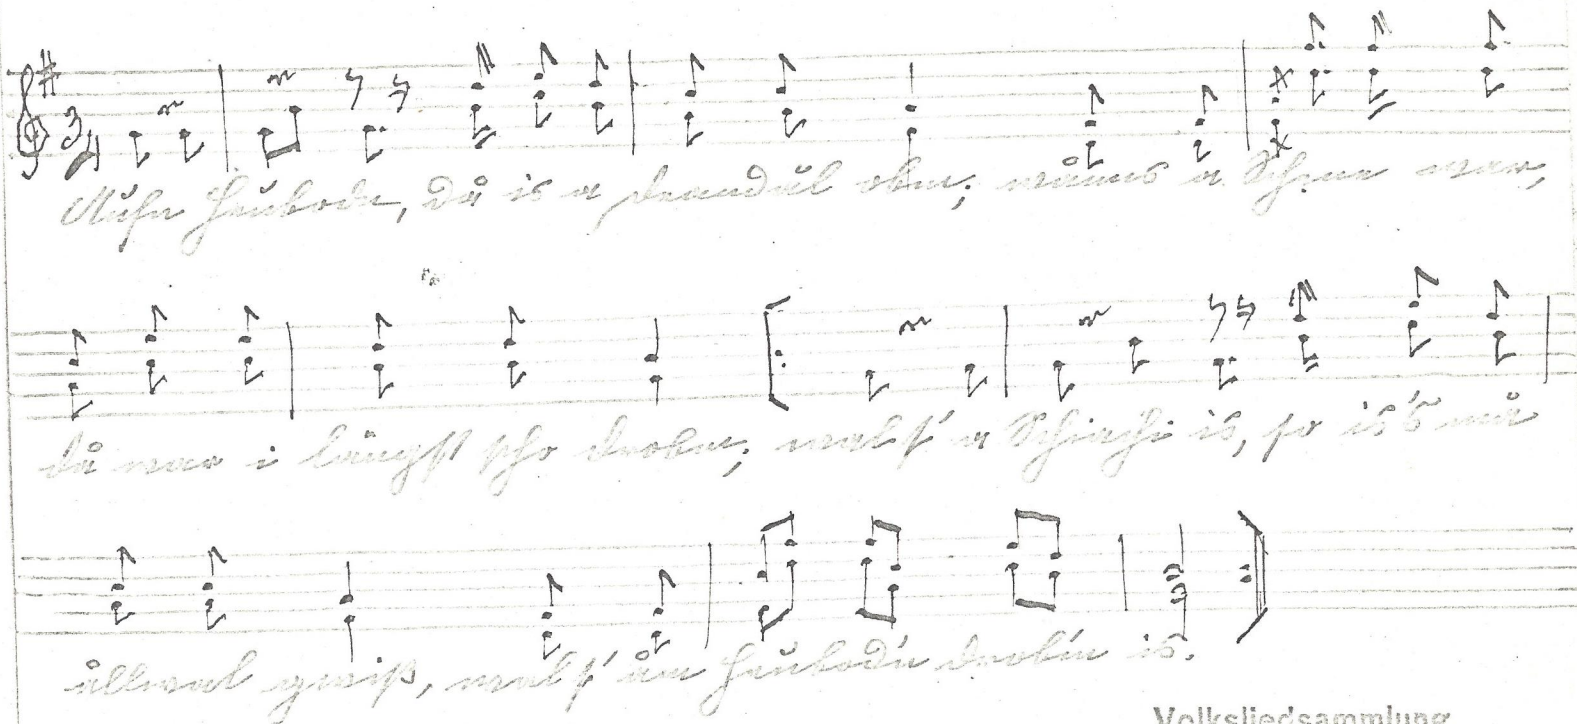 Aufn Heubodn, då is a Deandül obm; wånns a Schene war,
då war i längst scho drobm; weil s' a Schiachi is, so is's må
ållwal gwiß, weil s' åm Heubod'n drob'm is.
Volksliedsammlung